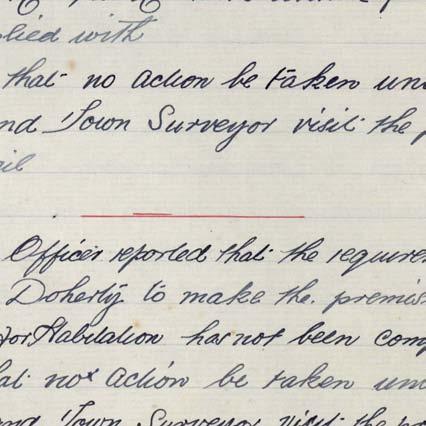 plied with
that no action be taken un
nd Town Surveyor visit the
Officer reported that the require
Doherty to make the premis
for Habitation has not been comp
at no action be taken un
nd Town Surveyor visit the